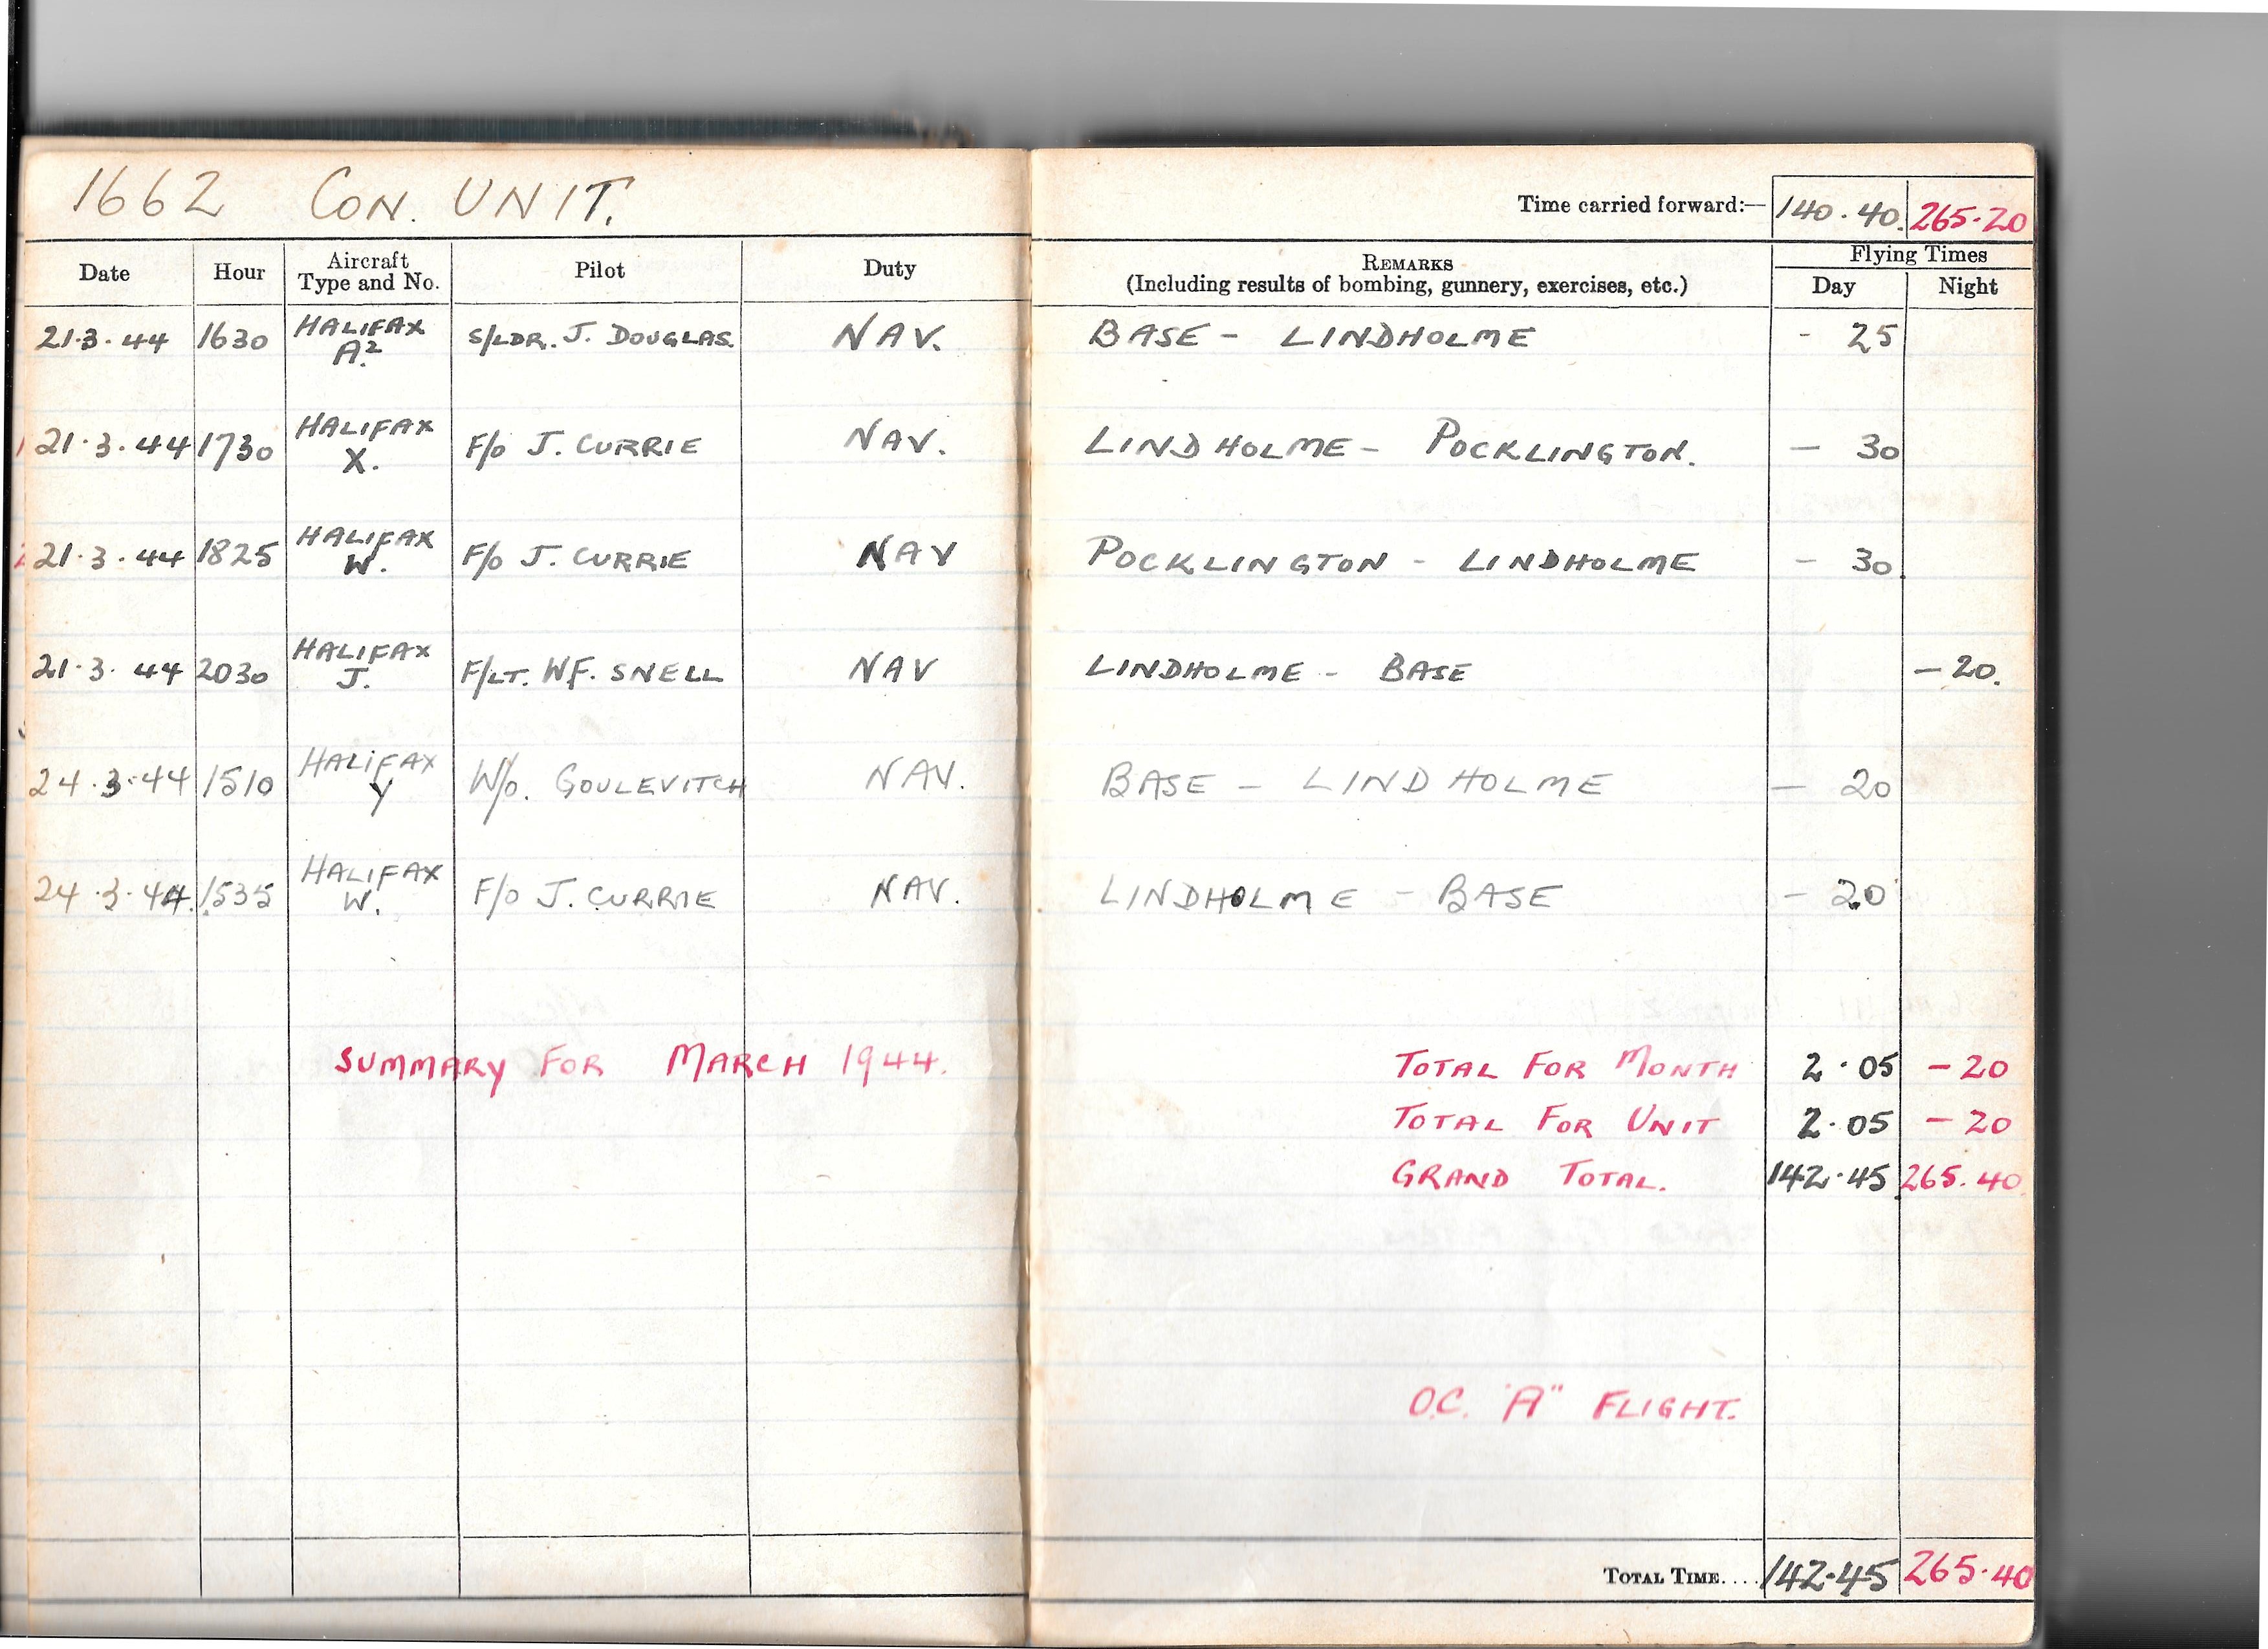 1662 CON. UNIT.
Time carried forward:— 140.40. 265.20
Date Hour Aircraft Type and No. Pilot Duty REMARKS (Including results of bombing, gunnery, exercises, etc.) Flying Times Day Night
21.3.44 1630 HALIFAX A² S/LDR. J. DOUGLAS. NAV. BASE - LINDHOLME - 25
21.3.44 1730 HALIFAX X. F/O J. CURRIE NAV. LINDHOLME - POCKLINGTON. - 30
21.3.44 1825 HALIFAX W. F/O J. CURRIE NAV POCKLINGTON - LINDHOLME - 30
21.3.44 2030 HALIFAX J. F/LT. WF. SNELL NAV LINDHOLME - BASE - 20.
24.3.44 1510 HALIFAX Y W/O. GOULEVITCH NAV. BASE - LINDHOLME - 20
24.3.44. 1535 HALIFAX W. F/O J. CURRIE NAV. LINDHOLME - BASE - 20
SUMMARY FOR MARCH 1944. TOTAL FOR MONTH 2.05 - 20
TOTAL FOR UNIT 2.05 - 20
GRAND TOTAL. 142.45 265.40
O.C. "A" FLIGHT.
TOTAL TIME.... 142.45 265.40